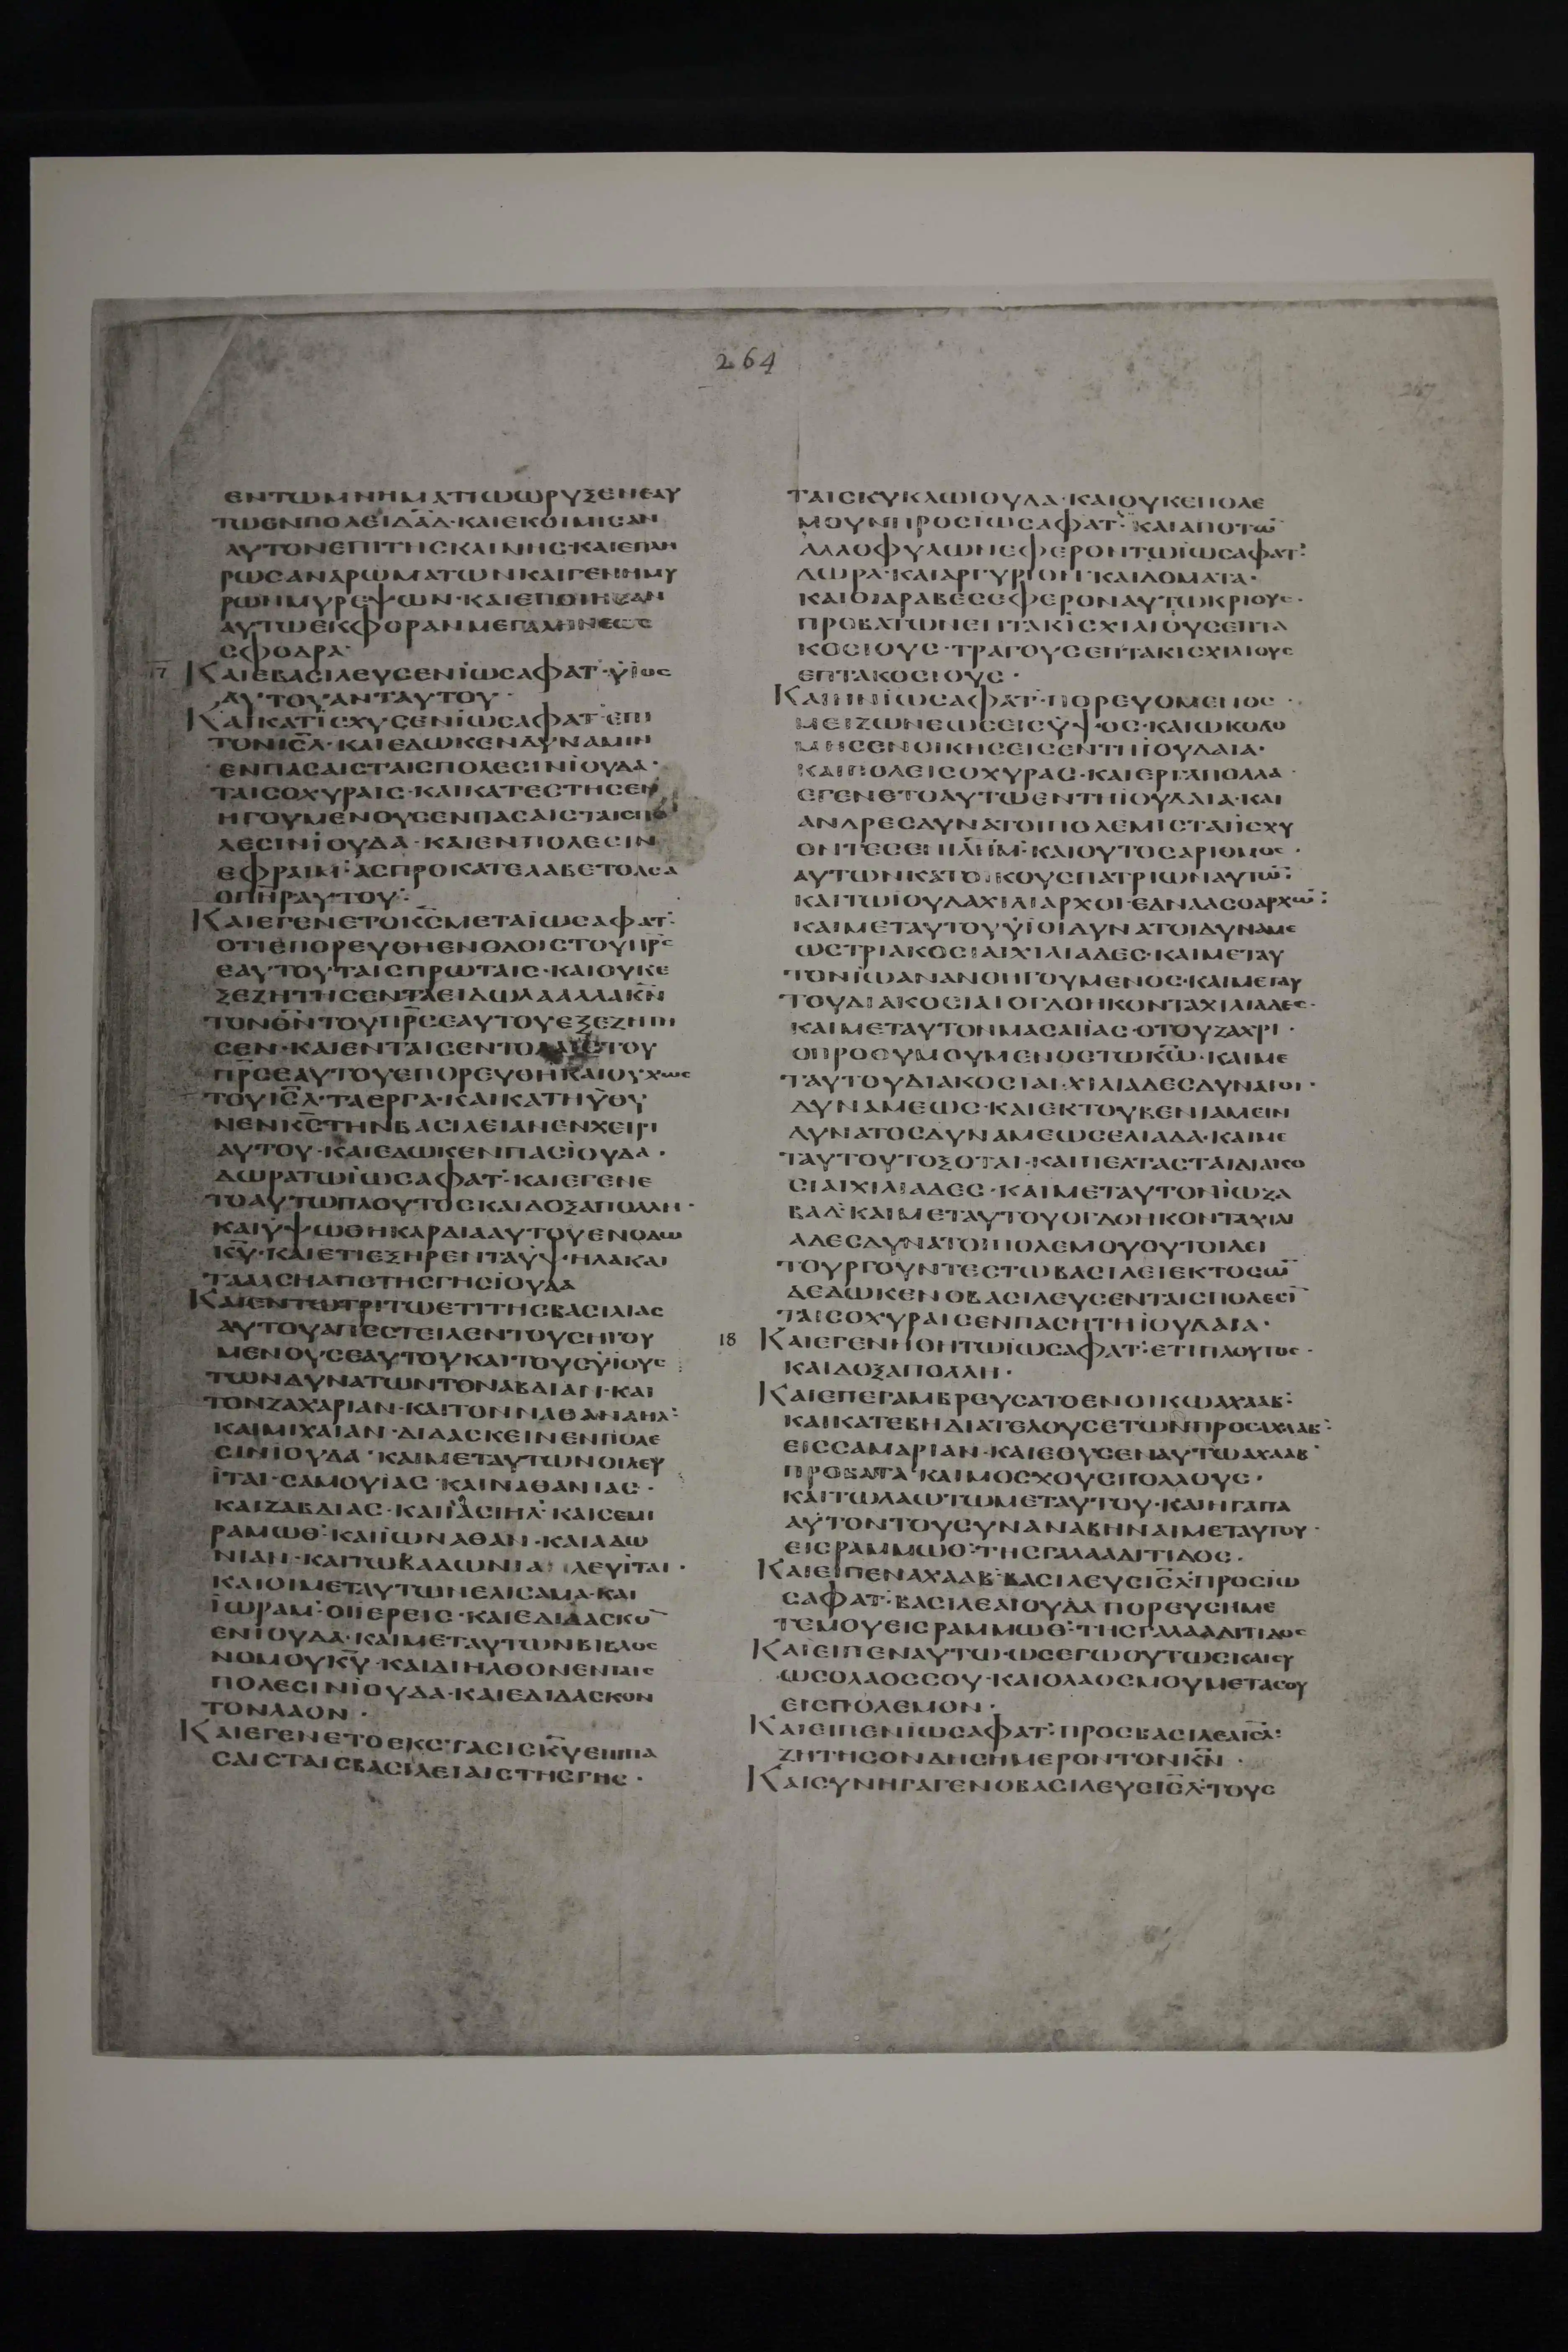 264
ΕΝΤΩΜΝΗΜΑΤΙΩΩΡΥΞΕΝΕΑΥ
ΤΩΕΝΠΟΛΕΙΔΑΔ·ΚΑΙΕΚΟΙΜΙΣΑΝ
ΑΥΤΟΝΕΠΙΤΗΣΚΛΙΝΗΣ·ΚΑΙΕΠΛΗ
ΡΩΣΑΝΑΡΩΜΑΤΩΝΚΑΙΓΕΝΗΜΥ
ΡΩΝΜΥΡΕΨΩΝ·ΚΑΙΕΠΟΙΗΣΑΝ
ΑΥΤΩΕΚΦΟΡΑΝΜΕΓΑΛΗΝΕΩΣ
ΣΦΟΔΡΑ·
17 ΚΑΙΕΒΑΣΙΛΕΥΣΕΝΪΩΣΑΦΑΤ·ΫΙΟΣ
ΑΥΤΟΥΑΝΤΑΥΤΟΥ·
ΚΑΙΚΑΤΙΣΧΥΣΕΝΪΩΣΑΦΑΤ·ΕΠΙ
ΤΟΝΙΣΛ·ΚΑΙΕΔΩΚΕΝΔΥΝΑΜΙΝ
ΕΝΠΑΣΑΙΣΤΑΙΣΠΟΛΕΣΙΝΪΟΥΔΑ·
ΤΑΙΣΟΧΥΡΑΙΣ·ΚΑΙΚΑΤΕΣΤΗΣΕΝ
ΗΓΟΥΜΕΝΟΥΣΕΝΠΑΣΑΙΣΤΑΙΣΠΟ
ΛΕΣΙΝΪΟΥΔΑ·ΚΑΙΕΝΠΟΛΕΣΙΝ
ΕΦΡΑΙΜ·ΑΣΠΡΟΚΑΤΕΛΑΒΕΤΟΑΣΑ
ΟΠΗΡΑΥΤΟΥ:
ΚΑΙΕΓΕΝΕΤΟΚΣΜΕΤΑΪΩΣΑΦΑΤ:
ΟΤΙΕΠΟΡΕΥΘΗΕΝΟΔΟΙΣΤΟΥΠΡΣ
ΕΑΥΤΟΥΤΑΙΣΠΡΩΤΑΙΣ·ΚΑΙΟΥΚΕ
ΞΕΖΗΤΗΣΕΝΤΑΕΙΔΩΛΑΑΛΛΑΚΝ
ΤΟΝΘΝΤΟΥΠΡΣΕΑΥΤΟΥΕΞΕΖΗΤΗ
ΣΕΝ·ΚΑΙΕΝΤΑΙΣΕΝΤΟΛΑΙΣΤΟΥ
ΠΡΣΕΑΥΤΟΥΕΠΟΡΕΥΘΗΚΑΙΟΥΧΩΣ
ΤΟΥΙΣΛ·ΤΑΕΡΓΑ·ΚΑΙΚΑΤΗΥΘΥ
ΝΕΝΚΣΤΗΝΒΑΣΙΛΕΙΑΝΕΝΧΕΙΡΙ
ΑΥΤΟΥ·ΚΑΙΕΔΩΚΕΝΠΑΣΪΟΥΔΑ·
ΔΩΡΑΤΩΪΩΣΑΦΑΤ·ΚΑΙΕΓΕΝΕ
ΤΟΑΥΤΩΠΛΟΥΤΟΣΚΑΙΔΟΞΑΠΟΛΛΗ·
ΚΑΙΫΨΩΘΗΚΑΡΔΙΑΑΥΤΟΥΕΝΟΔΩ
ΚΥ·ΚΑΙΕΤΙΕΞΗΡΕΝΤΑΫΨΗΛΑΚΑΙ
ΤΑΑΛΣΗΑΠΟΤΗΣΓΗΣΪΟΥΔΑ
ΚΑΙΕΝΤΩΤΡΙΤΩΕΤΙΤΗΣΒΑΣΙΛΙΑΣ
ΑΥΤΟΥΑΠΕΣΤΕΙΛΕΝΤΟΥΣΗΓΟΥ
ΜΕΝΟΥΣΕΑΥΤΟΥΚΑΙΤΟΥΣΫΙΟΥΣ
ΤΩΝΔΥΝΑΤΩΝΤΟΝΑΒΔΙΑΝ·ΚΑΙ
ΤΟΝΖΑΧΑΡΙΑΝ·ΚΑΙΤΟΝΝΑΘΑΝΑΗΛ:
ΚΑΙΜΙΧΑΙΑΝ·ΔΙΔΑΣΚΕΙΝΕΝΠΟΛΕ
ΣΙΝΪΟΥΔΑ·ΚΑΙΜΕΤΑΥΤΩΝΟΙΛΕΥ
ΪΤΑΙ·ΣΑΜΟΥΪΑΣ·ΚΑΙΝΑΘΑΝΙΑΣ·
ΚΑΙΖΑΒΔΙΑΣ·ΚΑΙΪΑΣΙΗΛ·ΚΑΙΣΕΜΙ
ΡΑΜΩΘ·ΚΑΙΪΩΝΑΘΑΝ·ΚΑΙΑΔΩ
ΝΙΑΝ·ΚΑΙΤΩΒΑΔΩΝΙΑ ΛΕΥΪΤΑΙ·
ΚΑΙΟΙΜΕΤΑΥΤΩΝΕΛΙΣΑΜΑ·ΚΑΙ
ΪΩΡΑΜ·ΟΙΪΕΡΕΙΣ·ΚΑΙΕΔΙΔΑΣΚΟ
ΕΝΪΟΥΔΑ·ΚΑΙΜΕΤΑΥΤΩΝΒΙΒΛΟΣ
ΝΟΜΟΥΚΥ·ΚΑΙΔΙΗΛΘΟΝΕΝΤΑΙΣ
ΠΟΛΕΣΙΝΪΟΥΔΑ·ΚΑΙΕΔΙΔΑΣΚΟΝ
ΤΟΝΛΑΟΝ·
ΚΑΙΕΓΕΝΕΤΟΕΚΣΤΑΣΙΣΚΥΕΠΙΠΑ
ΣΑΙΣΤΑΙΣΒΑΣΙΛΕΙΑΙΣΤΗΣΓΗΣ·
ΤΑΙΣΚΥΚΛΩΙΟΥΔΑ·ΚΑΙΟΥΚΕΠΟΛΕ
ΜΟΥΝΠΡΟΣΪΩΣΑΦΑΤ·ΚΑΙΑΠΟΤΩ
ΑΛΛΟΦΥΛΩΝΕΦΕΡΟΝΤΩΪΩΣΑΦΑΤ:
ΔΩΡΑ·ΚΑΙΑΡΓΥΡΙΟΝ·ΚΑΙΔΟΜΑΤΑ·
ΚΑΙΟΙΑΡΑΒΕΣΕΦΕΡΟΝΑΥΤΩΚΡΙΟΥΣ·
ΠΡΟΒΑΤΩΝΕΠΤΑΚΙΣΧΙΛΙΟΥΣΕΠΤΑ
ΚΟΣΙΟΥΣ·ΤΡΑΓΟΥΣΕΠΤΑΚΙΣΧΙΛΙΟΥΣ
ΕΠΤΑΚΟΣΙΟΥΣ·
ΚΑΙΗΝΪΩΣΑΦΑΤ·ΠΟΡΕΥΟΜΕΝΟΣ·
ΜΕΙΖΩΝΕΩΣΕΙΣΫΨΟΣ·ΚΑΙΩΚΟΔΟ
ΜΗΣΕΝΟΙΚΗΣΕΙΣΕΝΤΗΪΟΥΔΑΙΑ·
ΚΑΙΠΟΛΕΙΣΟΧΥΡΑΣ·ΚΑΙΕΡΓΑΠΟΛΛΑ·
ΕΓΕΝΕΤΟΑΥΤΩΕΝΤΗΪΟΥΔΑΙΑ·ΚΑΙ
ΑΝΔΡΕΣΔΥΝΑΤΟΙΠΟΛΕΜΙΣΤΑΙΪΣΧΥ
ΟΝΤΕΣΕΝΙΛΗΜ·ΚΑΙΟΥΤΟΣΑΡΙΘΜΟΣ·
ΑΥΤΩΝΚΑΤΟΙΚΟΥΣΠΑΤΡΙΩΝΑΥΤΩ:
ΚΑΙΤΩΙΟΥΔΑΧΙΛΙΑΡΧΟΙ·ΕΔΝΑΑΣΟΑΡΧΩ:
ΚΑΙΜΕΤΑΥΤΟΥΫΙΟΙΔΥΝΑΤΟΙΔΥΝΑΜΕ
ΩΣΤΡΙΑΚΟΣΙΑΙΧΙΛΙΑΔΕΣ·ΚΑΙΜΕΤΑΥ
ΤΟΝΪΩΑΝΑΝΟΗΓΟΥΜΕΝΟΣ·ΚΑΙΜΕΤΑΥ
ΤΟΥΔΙΑΚΟΣΙΑΙΟΓΔΟΗΚΟΝΤΑΧΙΛΙΑΔΕΣ·
ΚΑΙΜΕΤΑΥΤΟΝΜΑΣΑΙΪΑΣ·ΟΤΟΥΖΑΧΡΙ·
ΟΠΡΟΘΥΜΟΥΜΕΝΟΣΤΩΚΩ·ΚΑΙΜΕ
ΤΑΥΤΟΥΔΙΑΚΟΣΙΑΙ·ΧΙΛΙΑΔΕΣΔΥΝΑΤΟΙ·
ΔΥΝΑΜΕΩΣ·ΚΑΙΕΚΤΟΥΒΕΝΙΑΜΕΙΝ
ΔΥΝΑΤΟΣΔΥΝΑΜΕΩΣΕΛΙΑΔΑ·ΚΑΙΜΕ
ΤΑΥΤΟΥΤΟΞΟΤΑΙ·ΚΑΙΠΕΛΤΑΣΤΑΙΔΙΑΚΟ
ΣΙΑΙΧΙΛΙΑΔΕΣ·ΚΑΙΜΕΤΑΥΤΟΝΪΩΖΑ
ΒΑΔ·ΚΑΙΜΕΤΑΥΤΟΥΟΓΔΟΗΚΟΝΤΑΧΙΛΙ
ΑΔΕΣΔΥΝΑΤΟΙΠΟΛΕΜΟΥΟΥΤΟΙΛΕΙ
ΤΟΥΡΓΟΥΝΤΕΣΤΩΒΑΣΙΛΕΙΕΚΤΟΣΩ
ΔΕΔΩΚΕΝΟΒΑΣΙΛΕΥΣΕΝΤΑΙΣΠΟΛΕΣΙ
ΤΑΙΣΟΧΥΡΑΙΣΕΝΠΑΣΗΤΗΪΟΥΔΑΙΑ·
18 ΚΑΙΕΓΕΝΗΘΗΤΩΪΩΣΑΦΑΤ·ΕΤΙΠΛΟΥΤΟΣ·
ΚΑΙΔΟΞΑΠΟΛΛΗ·
ΚΑΙΕΠΕΓΑΜΒΡΕΥΣΑΤΟΕΝΟΙΚΩΑΧΑΑΒ:
ΚΑΙΚΑΤΕΒΗΔΙΑΤΕΛΟΥΣΕΤΩΝΠΡΟΣΑΧΑΑΒ·
ΕΙΣΣΑΜΑΡΙΑΝ·ΚΑΙΕΘΥΣΕΝΑΥΤΩΑΧΑΑΒ
ΠΡΟΒΑΤΑ·ΚΑΙΜΟΣΧΟΥΣΠΟΛΛΟΥΣ·
ΚΑΙΤΩΛΑΩΤΩΜΕΤΑΥΤΟΥ·ΚΑΙΗΓΑΠΑ
ΑΥΤΟΝΤΟΥΣΥΝΑΝΑΒΗΝΑΙΜΕΤΑΥΤΟΥ·
ΕΙΣΡΑΜΜΩΘ·ΤΗΣΓΑΛΑΑΔΙΤΙΔΟΣ·
ΚΑΙΕΙΠΕΝΑΧΑΑΒ·ΒΑΣΙΛΕΥΣΙΣΛ·ΠΡΟΣΪΩ
ΣΑΦΑΤ·ΒΑΣΙΛΕΑΙΟΥΔΑΠΟΡΕΥΣΗΜΕ
ΤΕΜΟΥΕΙΣΡΑΜΜΩΘ·ΤΗΣΓΑΛΑΑΔΙΤΙΔΟΣ
ΚΑΙΕΙΠΕΝΑΥΤΩ·ΩΣΕΓΩΟΥΤΩΣΚΑΙΣΥ
ΩΣΟΛΑΟΣΣΟΥ·ΚΑΙΟΛΑΟΣΜΟΥΜΕΤΑΣΟΥ
ΕΙΣΠΟΛΕΜΟΝ·
ΚΑΙΕΙΠΕΝΪΩΣΑΦΑΤ·ΠΡΟΣΒΑΣΙΛΕΑΙΣΛ:
ΖΗΤΗΣΟΝΔΗΣΗΜΕΡΟΝΤΟΝΚΝ·
ΚΑΙΣΥΝΗΓΑΓΕΝΟΒΑΣΙΛΕΥΣΙΣΛ·ΤΟΥΣ